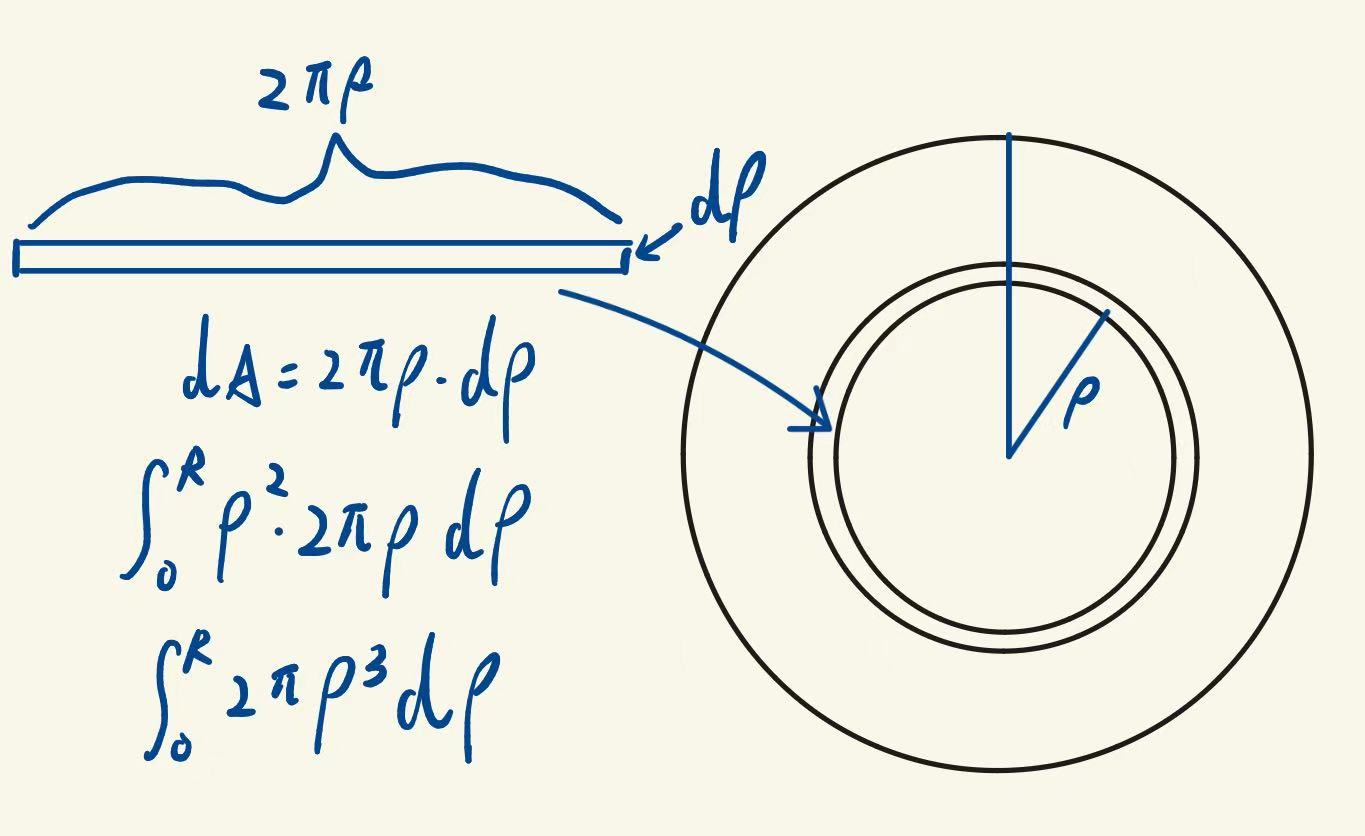 2πρ
dρ
dA = 2πρ · dρ
∫₀ᴿ ρ² · 2πρ dρ
∫₀ᴿ 2πρ³ dρ
ρ